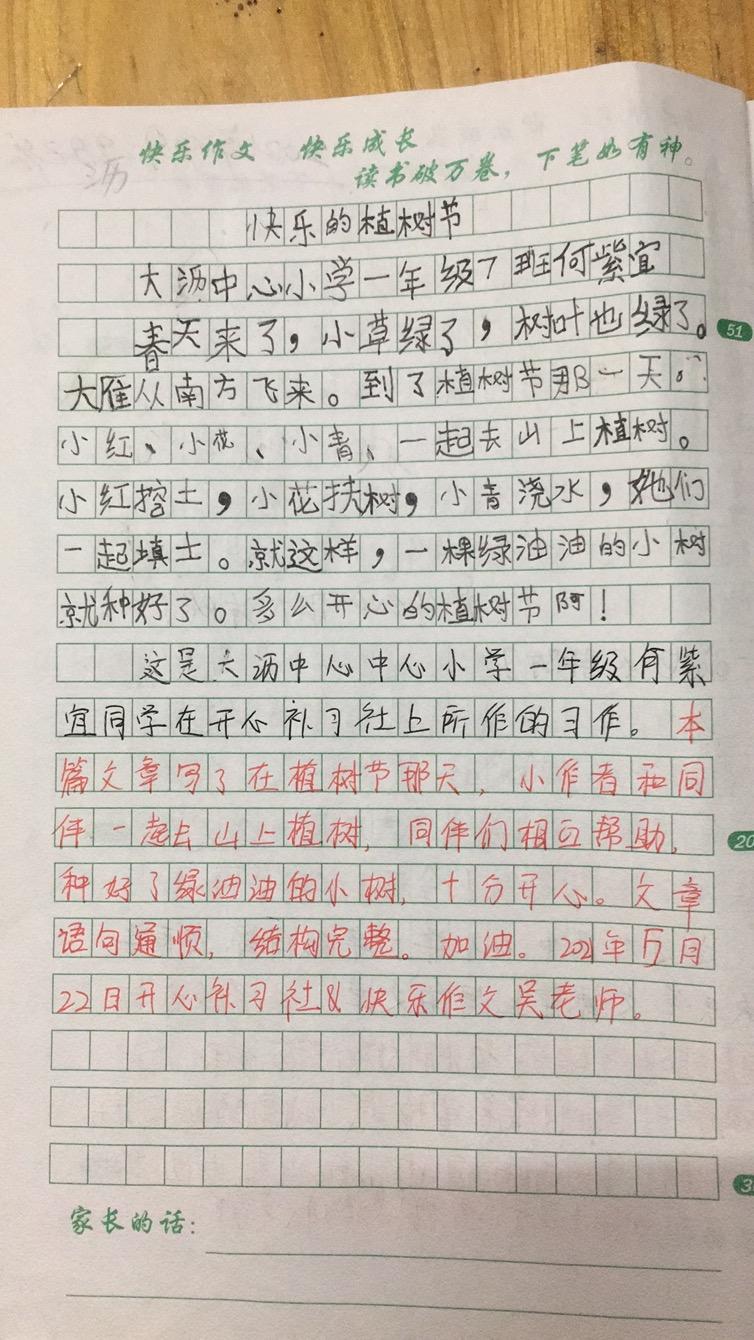 快乐作文 快乐成长
读书破万卷，下笔如有神。
沥
快乐的植树节
大沥中心小学一年级7班何紫宜
春天来了，小草绿了，树叶也绿了。
51
大雁从南方飞来。到了植树节那一天。
小红、小花、小青、一起去山上植树。
小红挖土，小花扶树，小青浇水，她们
一起填土。就这样，一棵绿油油的小树
就种好了。多么开心的植树节阿！
这是大沥中心中心小学一年级何紫
宜同学在开心补习社上所作的习作。本
篇文章写了在植树节那天，小作者和同
伴一起去山上植树，同伴们相互帮助，
20
种好了绿油油的小树，十分开心。文章
语句通顺，结构完整。加油。2021年5月
22日开心补习社&快乐作文吴老师。
3
家长的话：